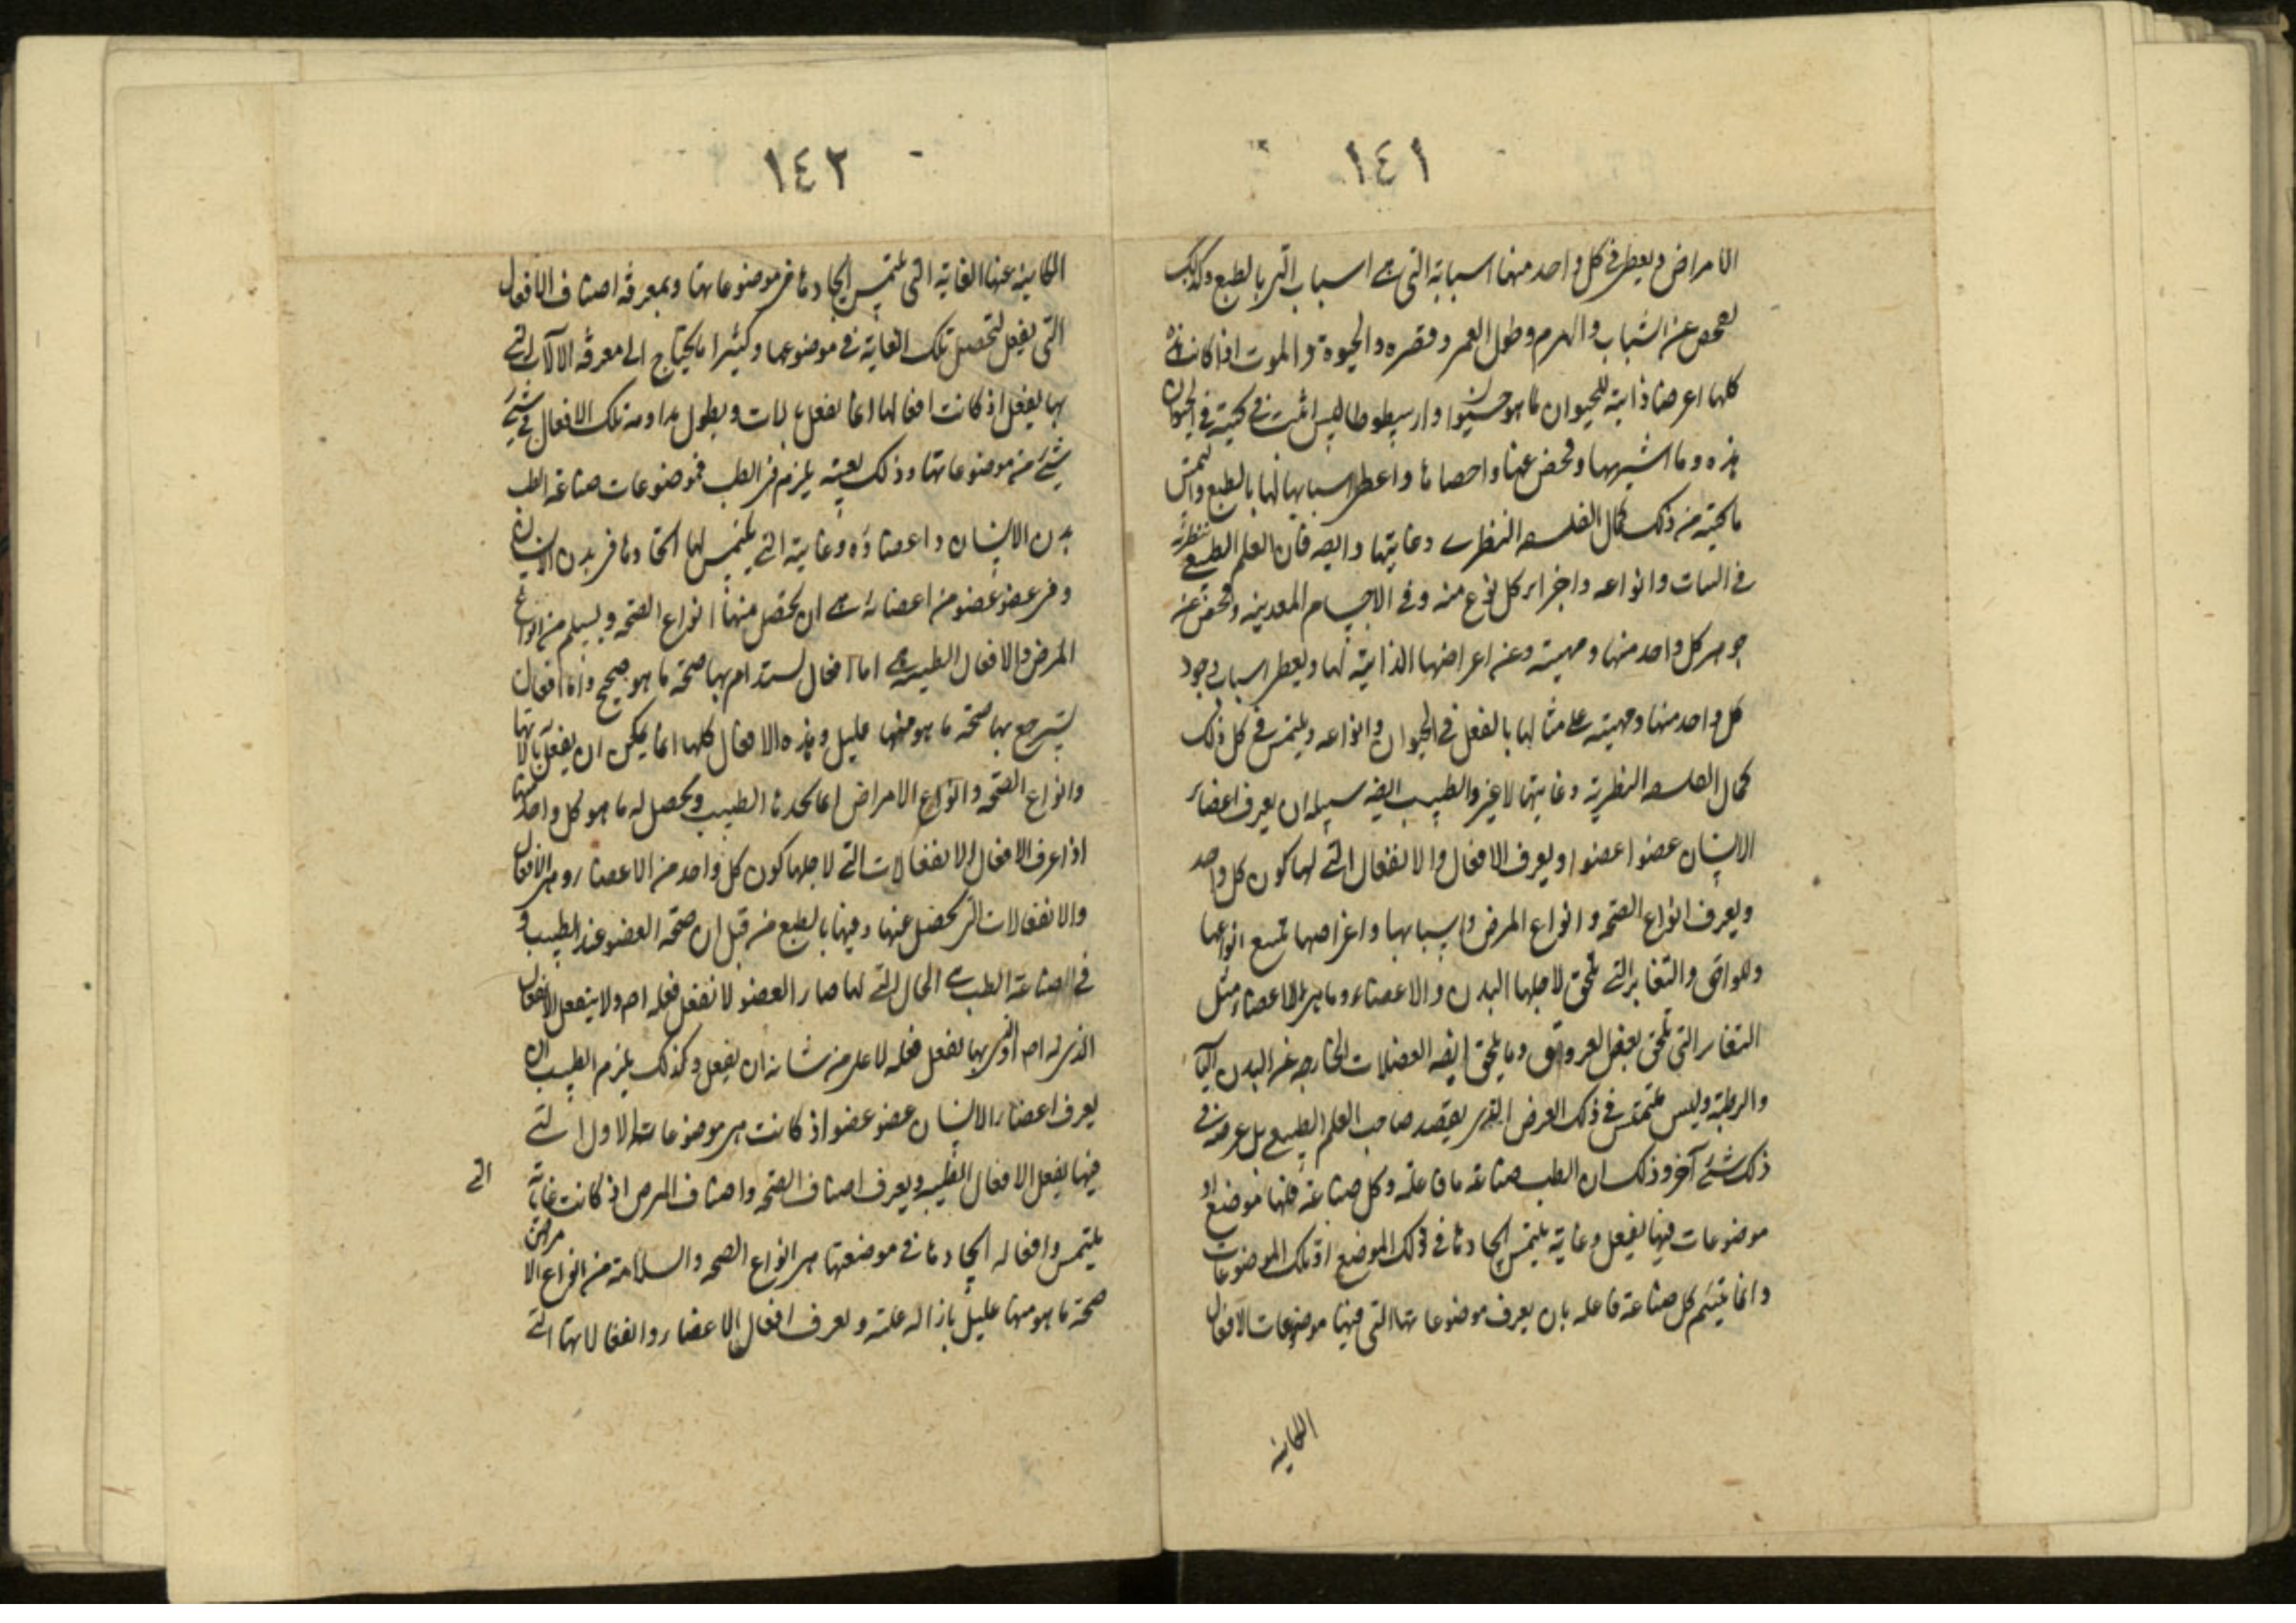 ١٤١
الامراض ويعطى فى كل واحد منها اسبابه التى هى اسباب التى بالطبع وكذلك
يفحص عن الشباب والهرم وطول العمر وقصره والحيوة والموت اذا كانت هذه
كلها اعراضا ذاتية للحيوان بما هو حيوان وارسطوطاليس اثبت فى كتبه فى الحيوان
هذه وما اشبهها وفحص عنها واحصاها واعطى اسبابها لها بالطبع والتمس
ما كتبه من ذلك كمال الفلسفه النظرى وغايتها وايضه فان العلم الطبيعى ينظر
فى النبات وانواعه واجزاء كل نوع منه وفى الاجسام المعدنيه ويفحص عن
جوهر كل واحد منها ومهيته وعن اعراضها الذاتية لها ويعطى اسباب وجود
كل واحد منها ومهيته على مثال ما بالفعل فى الحيوان وانواعه ويلتمس فى كل ذلك
كمال الفلسفه النظرية وغايتها لا غير والطبيب ايضه سبيله ان يعرف اعضاء
الانسان عضوا عضوا ويعرف الافعال والانفعال التى لها كون كل واحد
ويعرف انواع الصحة وانواع المرض واسبابها واعراضها جميع انواعها
واللواحق والتغاير التى تلحق لاجلها البدن والاعضاء وما هى الاعضاء مثل
التغاير التى تلحق بعض العروق وما يلحق ايضه الفضلات الخارجه عن البدن اليابسة
والرطبة وليس يلتمس فى ذلك الغرض الذى يقصد صاحب العلم الطبيعى بل غرضه فى
ذلك شئ آخر وذلك ان الطب صناعة ما فاعلة وكل صناعة فلها موضع او
موضوعات فيها يفعل وغاية يلتمس ايجادها فى ذلك الموضع او تلك الموضوعات
وانما يتيتم كل صناعة فاعله بان يعرف موضوعاتها التى فيها موضوعات الافعال
الكاينه
١٤٢
الكاينة عنها الغاية التى يلتمس ايجادها فى موضوعاتها وبمعرفة اصناف الافعال
التى يفعل لتحصل تلك الغاية فى موضوعها وكثيرا ما يحتاج الى معرفة الآلات التى
بها يفعل اذ كانت افعالها انما يفعل بالات وبطول مداومه تلك الافعال فى شئ
شئ من موضوعاتها وذلك بعينه يلزم فى الطب فموضوعات صناعة الطب
بدن الانسان واعضاؤه وغايته التى يلتمس لها ايجادها فى بدن الانسان
وفى عضو عضو من اعضائه هى ان يحصل منها انواع الصحة ويسلم من انواع
المرض والافعال الطبيه هى اما افعال يستدام بها صحة ما هو صحيح واما افعال
يسترجع بها صحة ما هو منها عليل وهذه الافعال كلها انما يمكن ان يفعل بآلاتها
وانواع الصحة وانواع الامراض انما يحدها الطبيب ويحصل له ما هو كل واحد منها
اذا عرف الافعال والانفعالات التى لاجلها كون كل واحد من الاعضاء وهى الافعال
والانفعالات التى يحصل عنها وفيها بالطبع من قبل ان صحة العضو عند الطبيب و
فى الصناعة الطب هى الحال التى لها صار العضو لا يفعل فعله اصلا ولا ينفعل الانفعال
الذى له اصلا او التى بها يفعل فعله لا على من شانه ان يفعل وكذلك يلزم الطبيب ان
يعرف اعضاء الانسان عضو عضو اذ كانت هى موضوعاته الاول التى
فيها يفعل الافعال الطبيه ويعرف اصناف الصحة واصناف المرض اذ كانت غاياته التى
يلتمس وافعاله ايجادها فى موضعها هى انواع الصحه والسلامة من انواع الامراض
صحة ما هو منها عليل بازالة علته ويعرف افعال الاعضاء وانفعالاتها التى